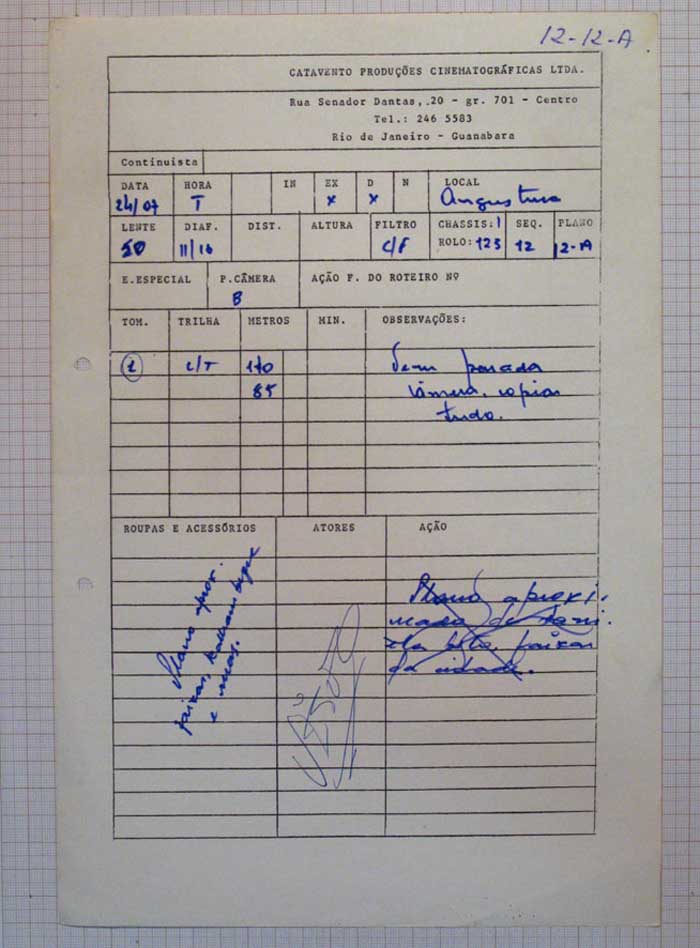 12-12-A
CATAVENTO PRODUÇÕES CINEMATOGRÁFICAS LTDA.
Rua Senador Dantas, 20 - gr. 701 - Centro
Tel.: 246 5583
Rio de Janeiro - Guanabara
Continuista
DATA HORA IN EX D N LOCAL
24/07 T x x Angustura
LENTE DIAF. DIST. ALTURA FILTRO CHASSIS: 1 SEQ. PLANO
50 11/16 C/F ROLO: 123 12 12-A
E.ESPECIAL P.CÂMERA AÇÃO F. DO ROTEIRO Nº
B
TOM. TRILHA METROS MIN. OBSERVAÇÕES:
1 C/T 170 parada
85 câmera, copiar
tudo.
ROUPAS E ACESSÓRIOS ATORES AÇÃO
Plano aprox.
faixas,
e
Plano aproxi-
mado de
faixas
da cidade.